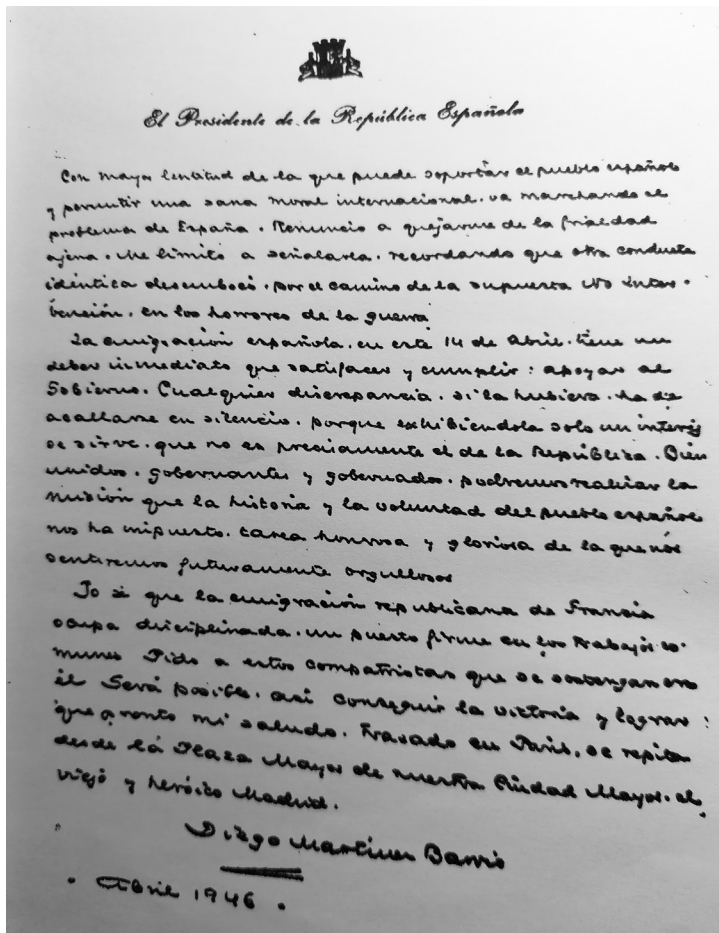 El Presidente de la República Española
Con mayor lentitud de la que puede soportar el pueblo español
y permitir una sana moral internacional. va marchando el
problema de España. Renuncio a quejarme de la frialdad
ajena. Me limito a señalarla. recordando que otra conducta
idéntica desembocó. por el camino de la supuesta No Inter-
bención. en los horrores de la guerra
La emigración española. en este 14 de Abril. tiene un
deber inmediato que satisfacer y cumplir: apoyar al
Gobierno. Cualquier discrepancia. si la hubiera. ha de
acallarse en silencio. porque exhibiéndola solo un interés
se sirve. que no es precisamente el de la República. Bien
unidos. gobernantes y gobernados. podremos realizar la
misión que la historia y la voluntad del pueblo español
nos ha impuesto. tarea honrosa y gloriosa de la que nos
sentiremos futuramente orgullosos
Yo sé que la emigración republicana de Francia
ocupa disciplinada. un puesto firme en los trabajos co-
munes Pido a estos compatriotas que se sostengan en
él Será posible. así conseguir la victoria y lograr:
que pronto mi saludo. Trazado en París, se repita
desde la Plaza Mayor de nuestra Ciudad Mayor. el
viejo y heróico Madrid.
Diego Martínez Barrio
Abril 1946.